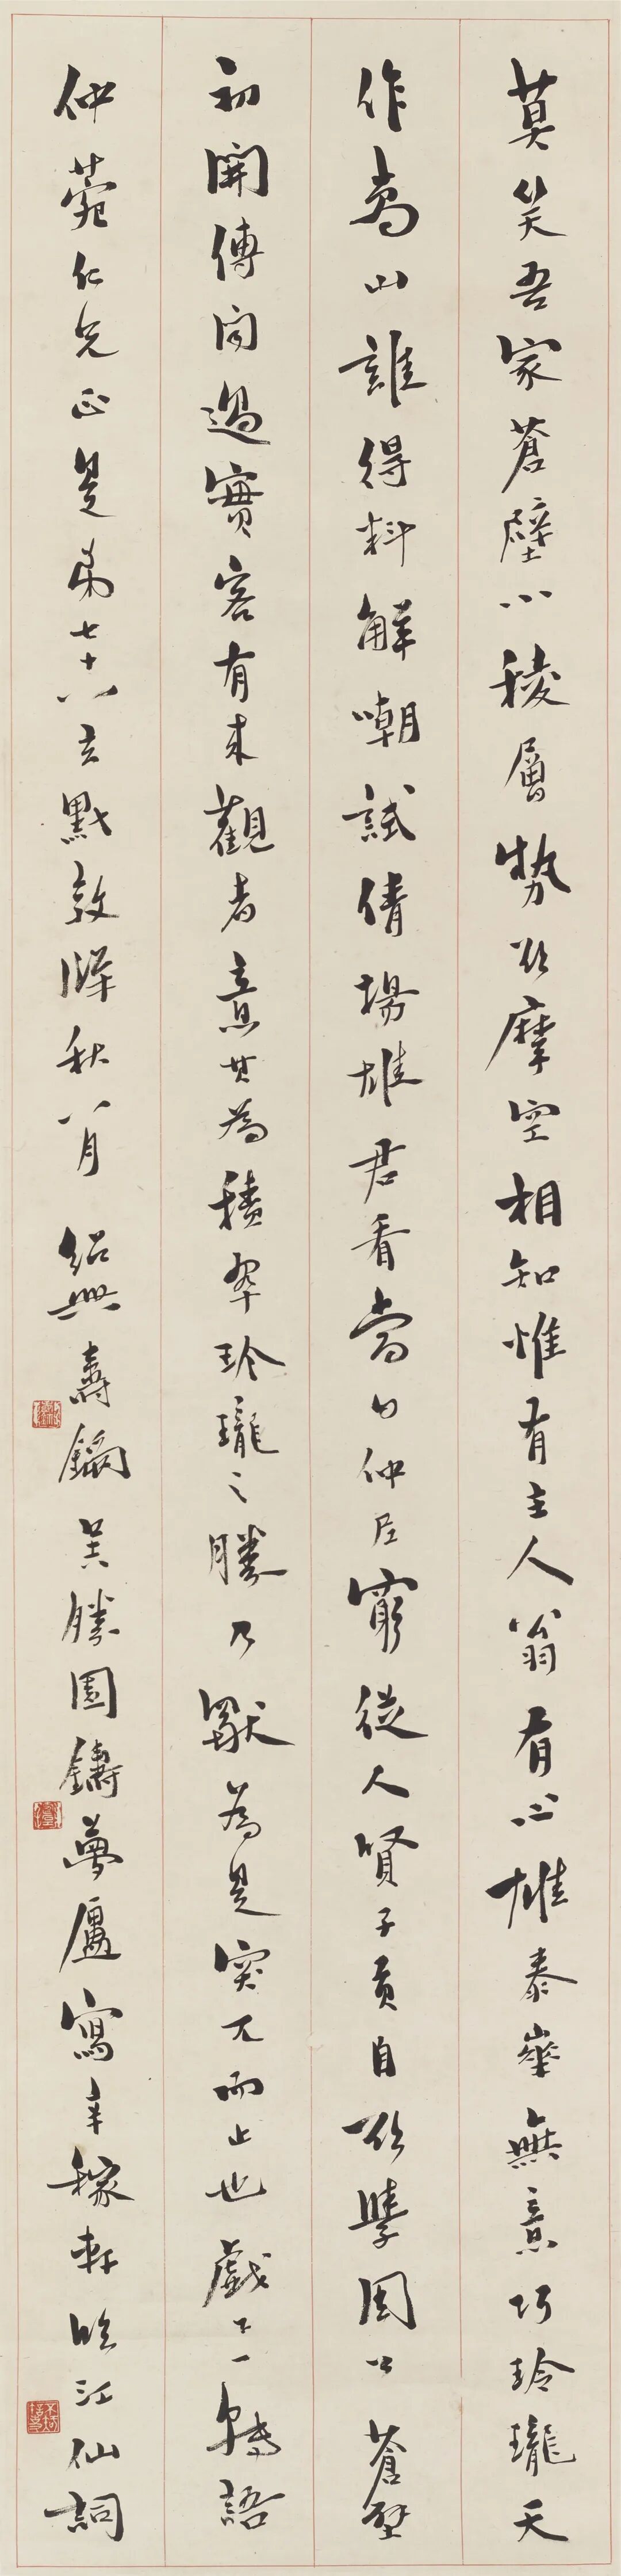 莫笑吾家蒼壁小稜層勢欲摩空相知惟有主人翁有心雄泰華無意巧玲瓏天
作高山誰得料解嘲試倩揚雄君看當日仲尼窮從人賢子貢自欲學周公蒼壁
初開傳聞過實客有來觀者意其為積翠玲瓏之勝乃獨為是突兀而止也戲下一轉語
仲菀仁兄正是弟七十八玄黓敦牂秋八月 紹興壽鑈勝園鑄夢廬寫辛稼軒臨江仙詞